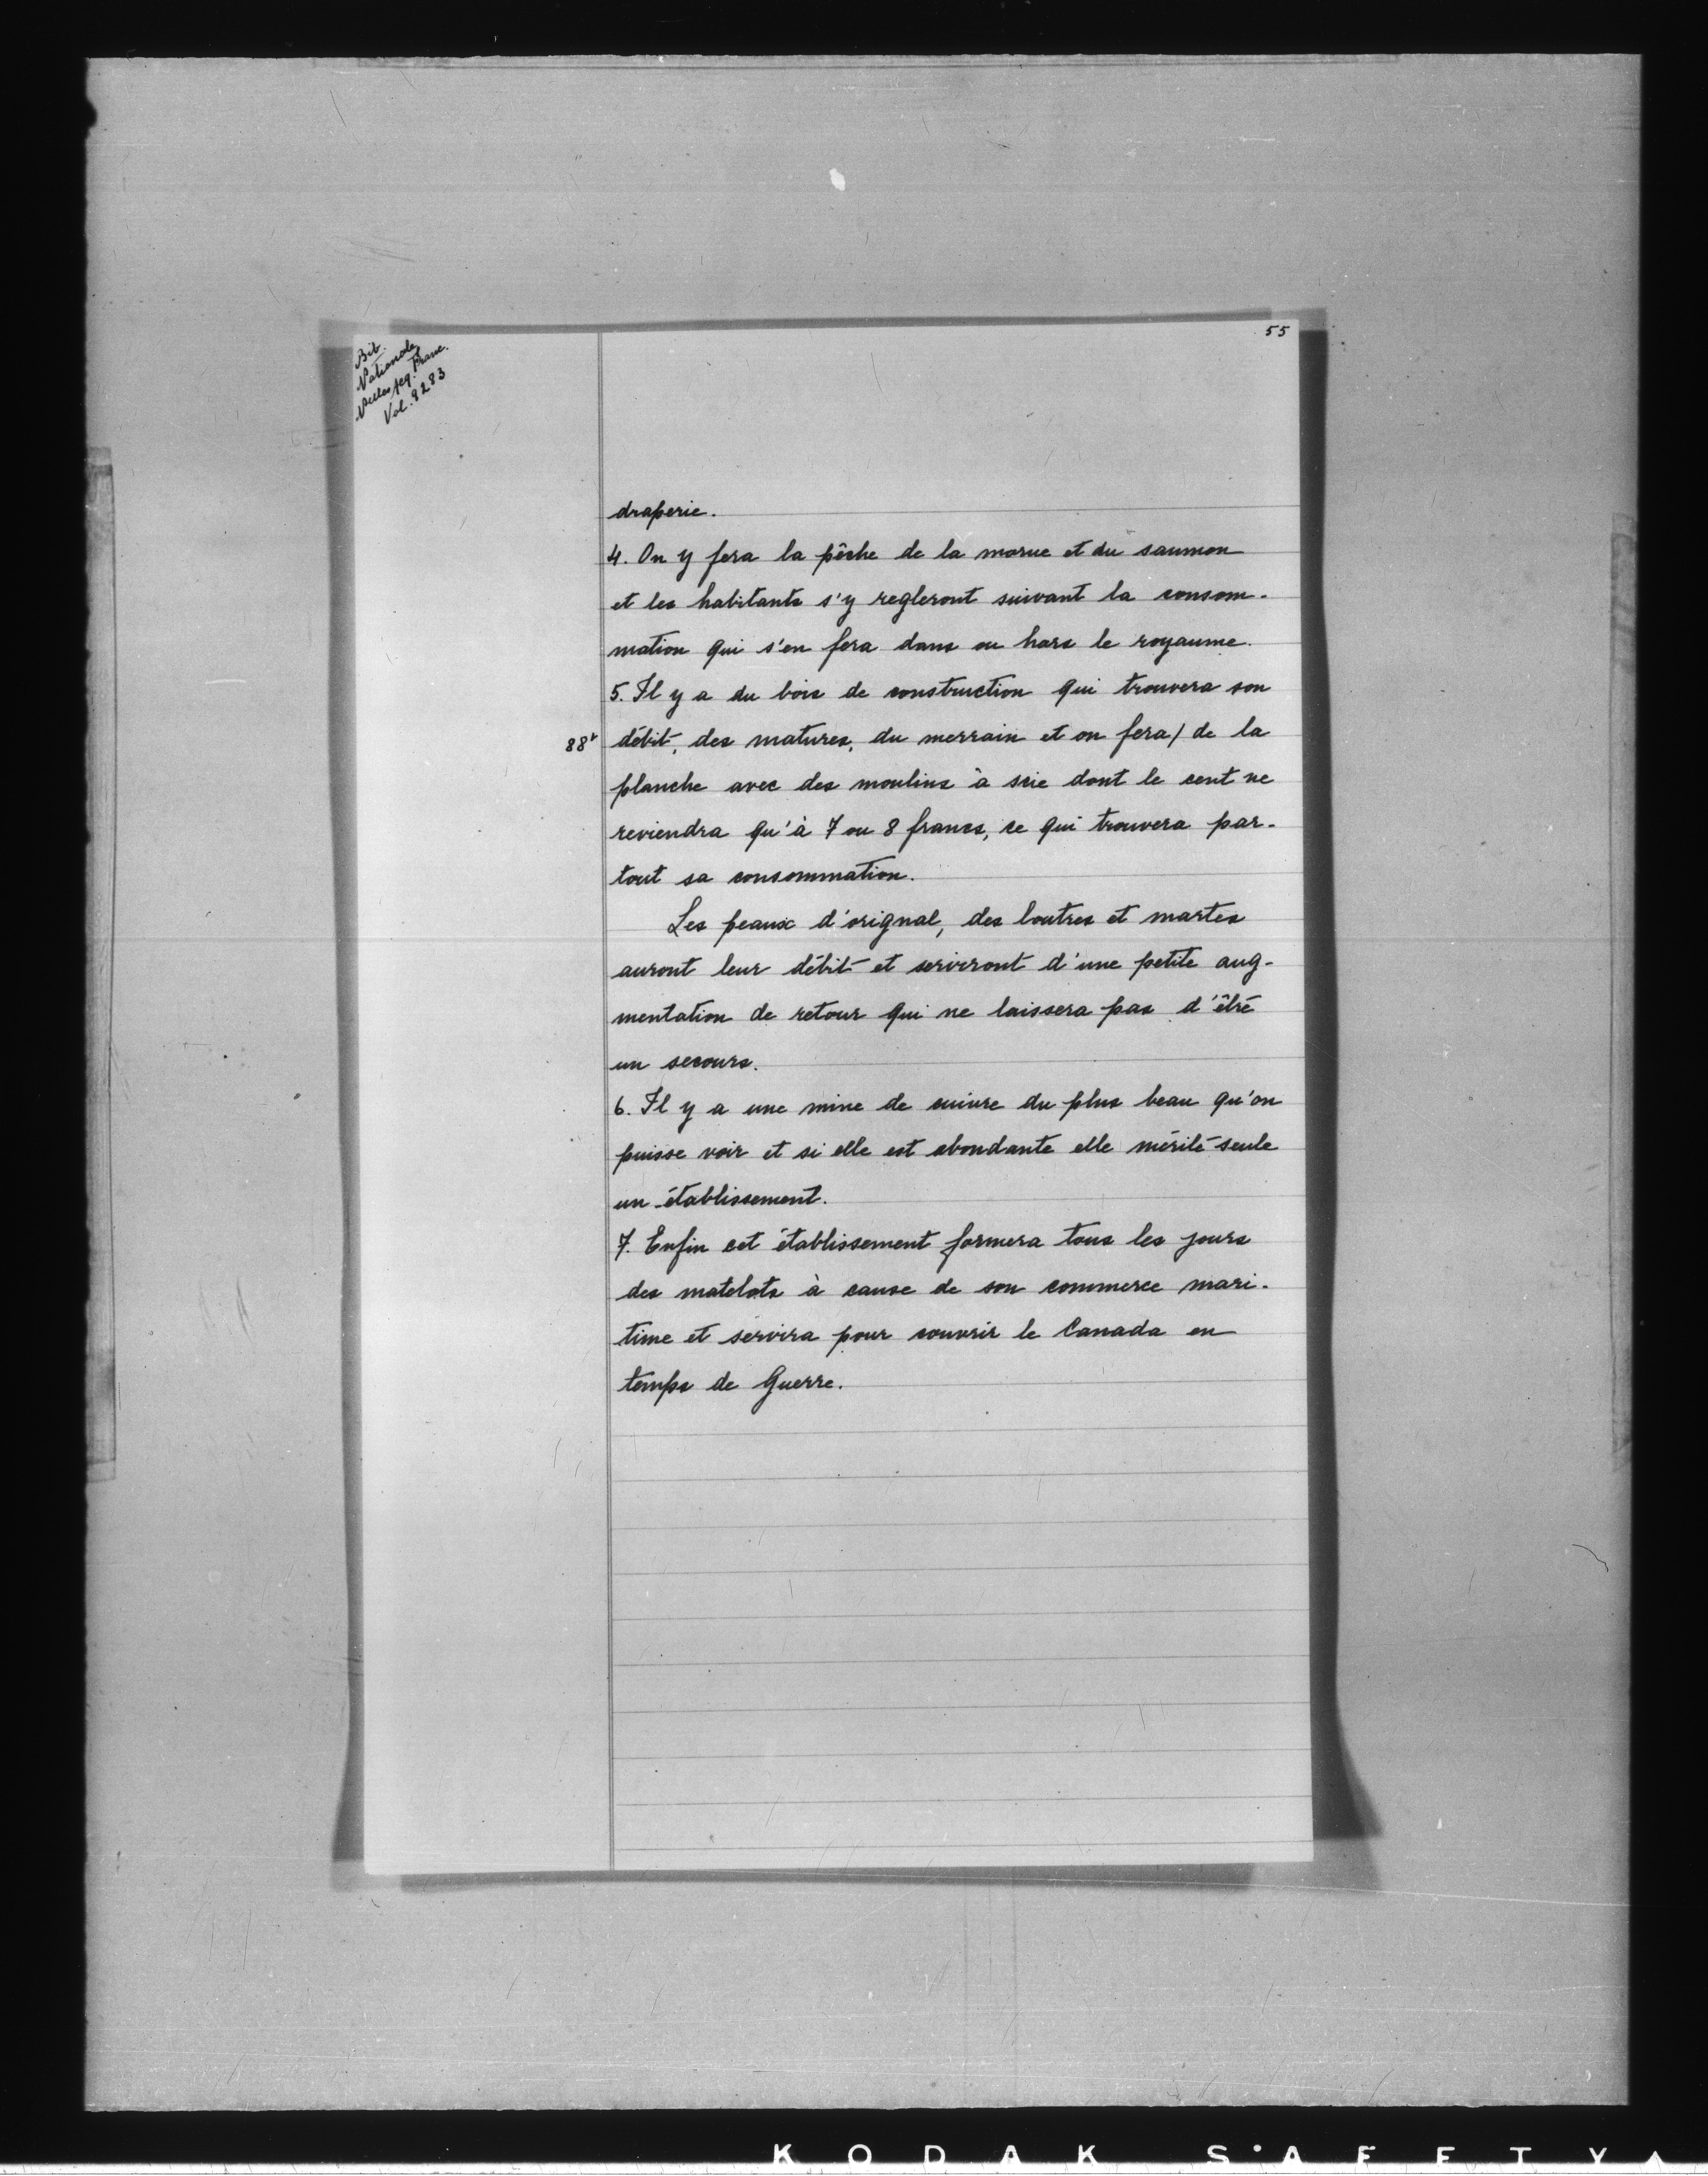 55
Bib.
Nationale
Nelles acq. Franc.
Vol. 9283
draperie.
4. On y fera la pêche de la morue et du saumon
et les habitants s'y regleront suivant la consom-
mation qui s'en fera dans ou hors le royaume.
5. Il y a du bois de construction qui trouvera son
88v
débit, des matures, du merrain et on fera/ de la
planche avec des moulins à scie dont le cent ne
reviendra qu'à 7 ou 8 francs, ce qui trouvera par-
tout sa consommation.
Les peaux d'orignal, des loutres et martes
auront leur débit et serviront d'une petite aug-
mentation de retour qui ne laissera pas d'être
un secours.
6. Il y a une mine de cuivre du plus beau qu'on
puisse voir et si elle est abondante elle mérite seule
un établissement.
7. Enfin cet établissement formera tous les jours
des matelots à cause de son commerce mari-
time et servira pour couvrir le Canada en
temps de Guerre.
KODAK SAFETY